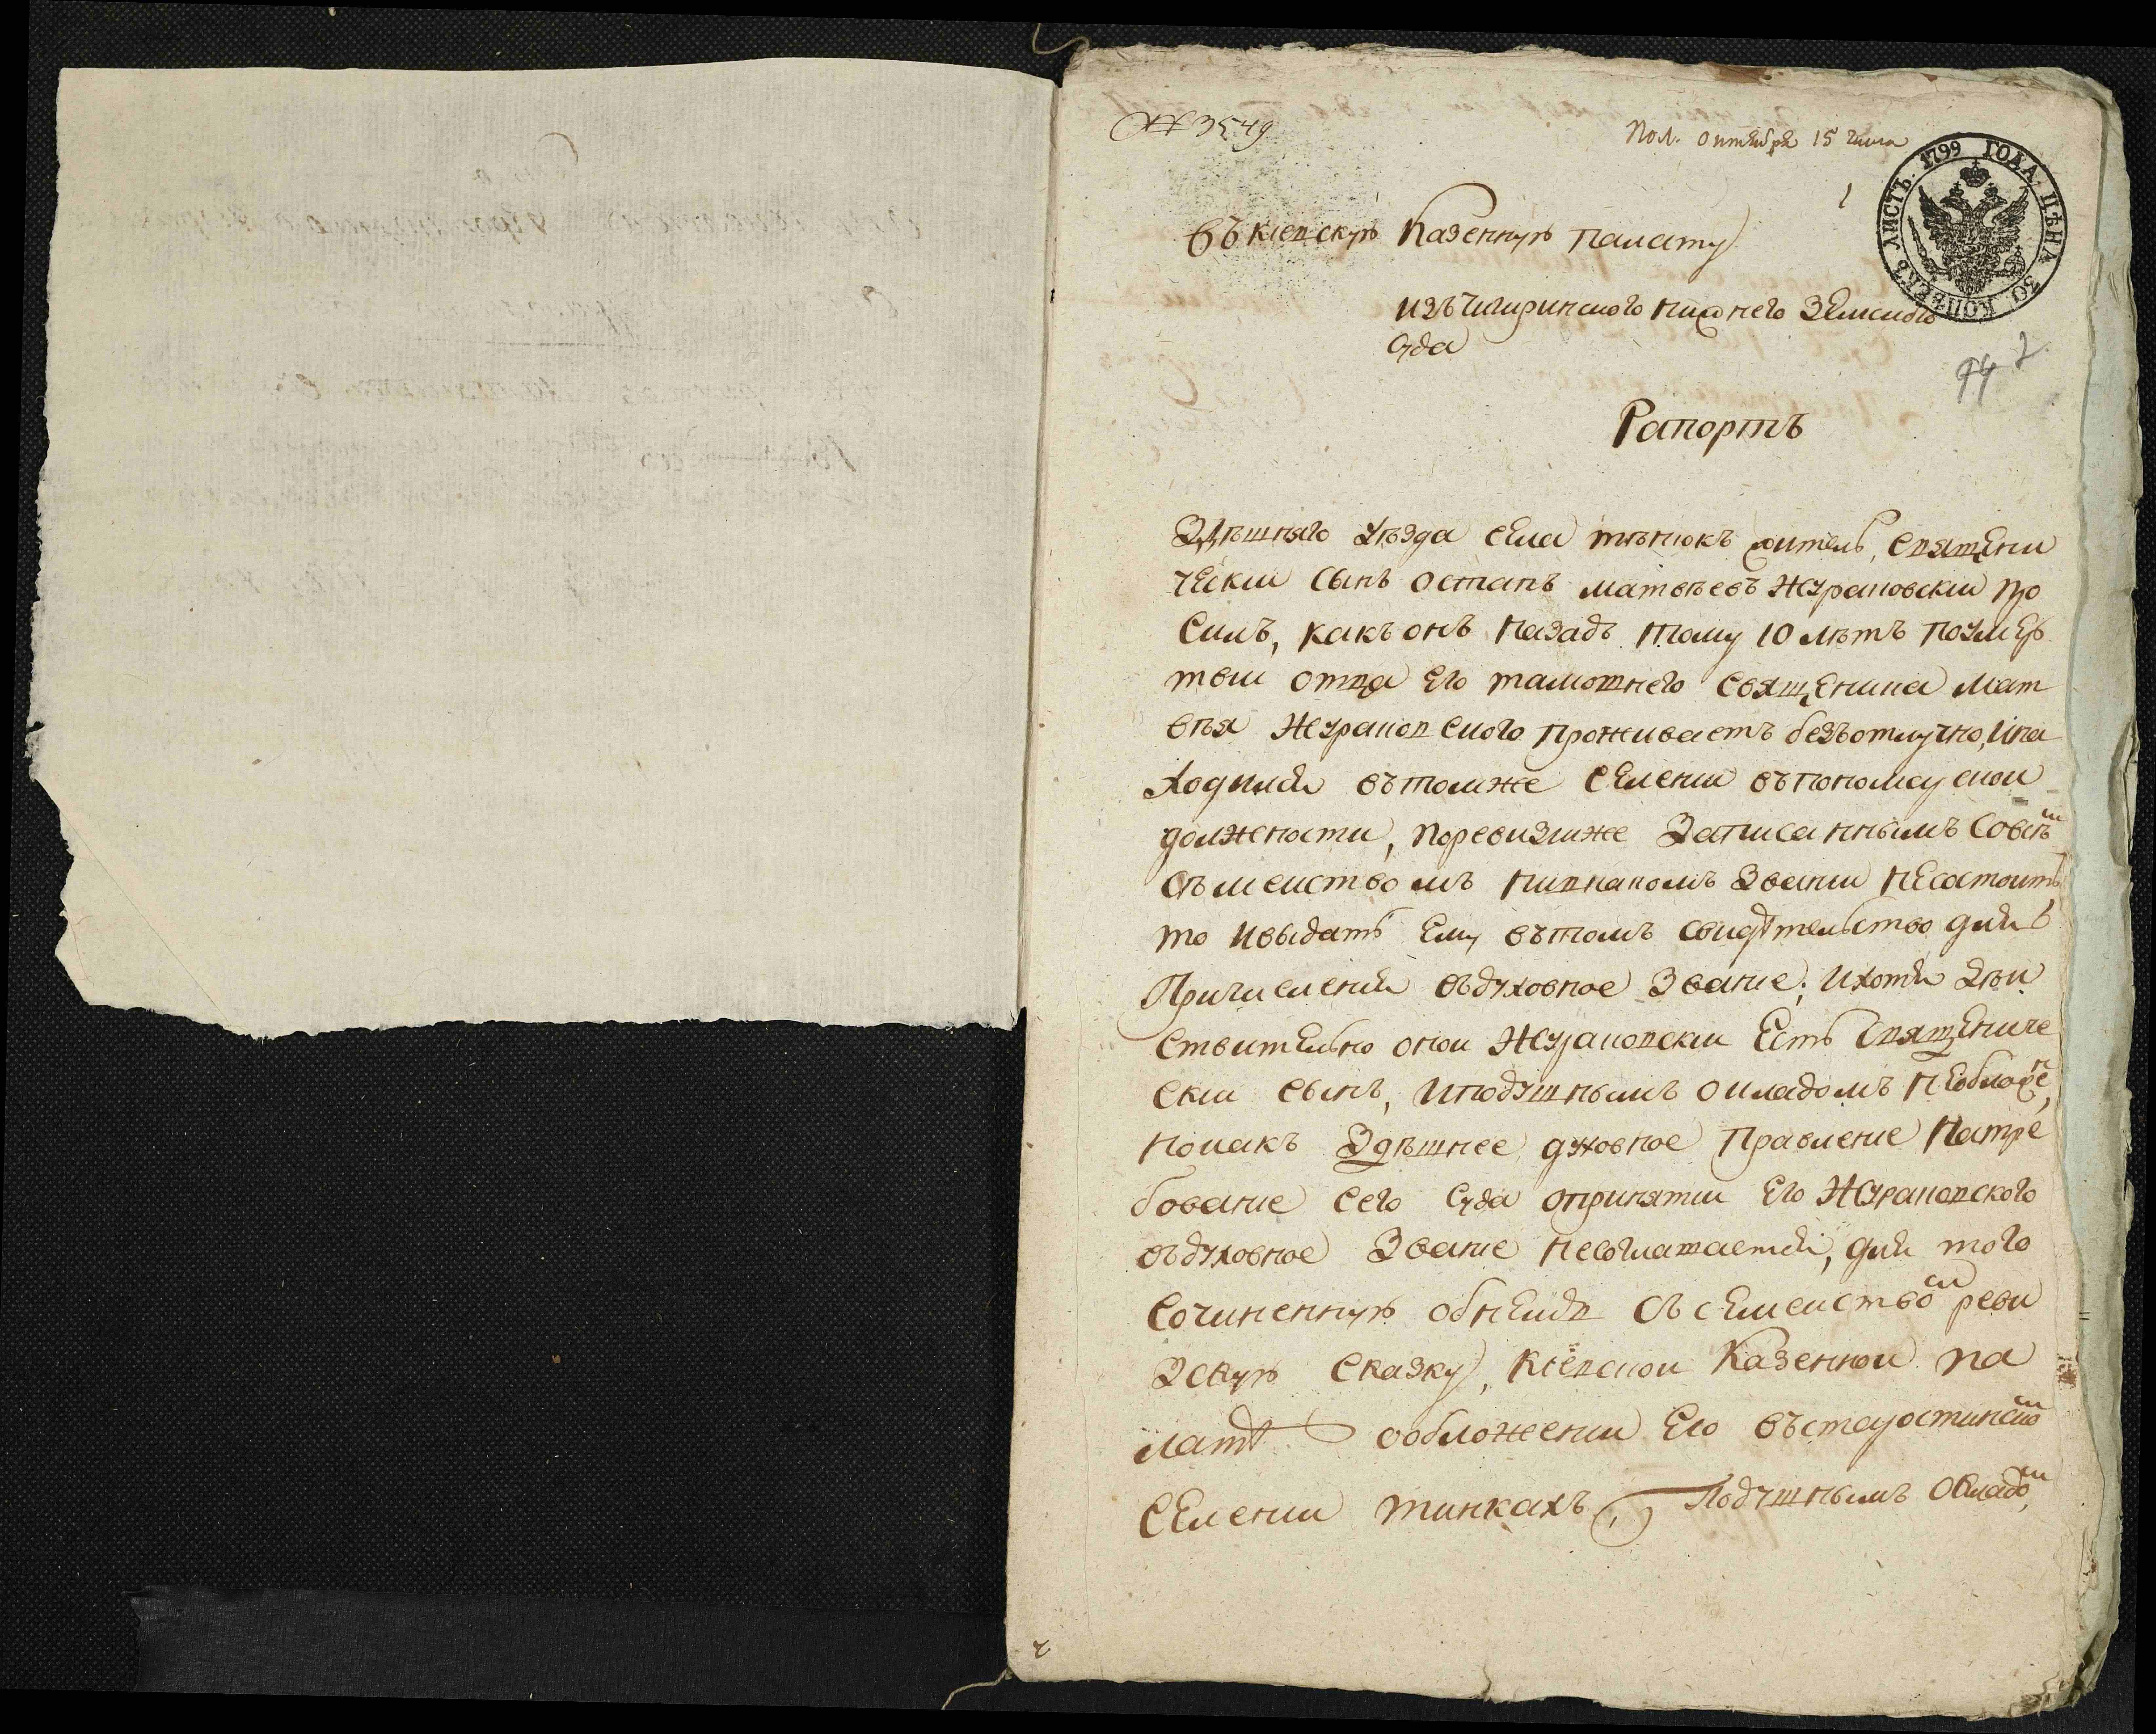 № 3549
Пол. октября 15 числа
1799 ГОДА. ЦѢНА 30 КОПѢЕКЪ ЛИСТЪ.
1
въ киевскую Казенную палату
изъ чигиринского нижнего Земского
суда
94 2
Рапортъ
Здѣшняго уѣзда села тѣнюкъ житель, священи
ческии сынъ остапъ матвѣевъ Журановскии про
силъ, какъ онъ назадъ тому 10 лѣтъ поумер
твии отца его тамошнего священика мат
вѣя Журановского проживаетъ безъотлучно, ина
ходился вътомже селении въпономарскои
должности, поревизииже Записаннымъ Совсѣм
сѣмеиствомъ нивкакомъ Звании несостоитъ
то ивыдать ему вътомъ свидѣтельство для
Причисления въдуховное Звание; ихотя дѣи
ствительно онои Журановскии Есть священиче
скии сынъ, иподушнымъ окладомъ необложен,
нокакъ Здѣшнее духовное правление натре
бование сего суда опринятии его Журановского
въдуховное Звание несоглашается, для того
сочиненную обнемъ съ семеиством реви
зскую сказку, киевскои Казеннои па
латѣ ообложении его въстаростинском
селении тинкахъ, Подушнымъ окладом,